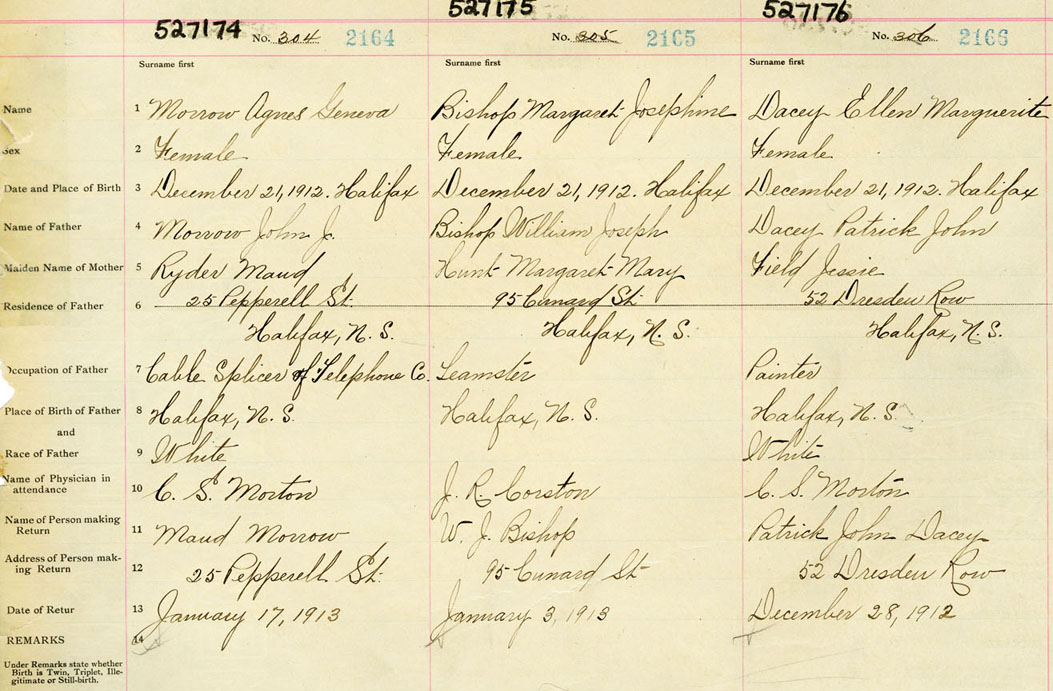 527174 527175 527176
No. 304 2164 No. 305 2165 No. 306 2166
Surname first Surname first Surname first
Name 1 Morrow Agnes Geneva Bishop Margaret Josephine Dacey Ellen Marguerite
Sex 2 Female Female Female
Date and Place of Birth 3 December 21, 1912. Halifax December 21, 1912. Halifax December 21, 1912. Halifax
Name of Father 4 Morrow John J. Bishop William Joseph Dacey Patrick John
Maiden Name of Mother 5 Ryder Maud Hunt Margaret Mary Field Jessie
Residence of Father 6 25 Pepperell St. 95 Cunard St. 52 Dresden Row
Halifax, N. S. Halifax, N. S. Halifax, N. S.
Occupation of Father 7 Cable Splicer of Telephone Co. Teamster Painter
Place of Birth of Father 8 Halifax, N. S. Halifax, N. S. Halifax, N. S.
and
Race of Father 9 White White
Name of Physician in
attendance 10 C. S. Morton J. R. Corston C. S. Morton
Name of Person making
Return 11 Maud Morrow W. J. Bishop Patrick John Dacey
Address of Person mak-
ing Return 12 25 Pepperell St. 95 Cunard St 52 Dresden Row
Date of Retur 13 January 17, 1913 January 3, 1913 December 28, 1912
REMARKS 14
Under Remarks state whether
Birth is Twin, Triplet, Ille-
gitimate or Still-birth.